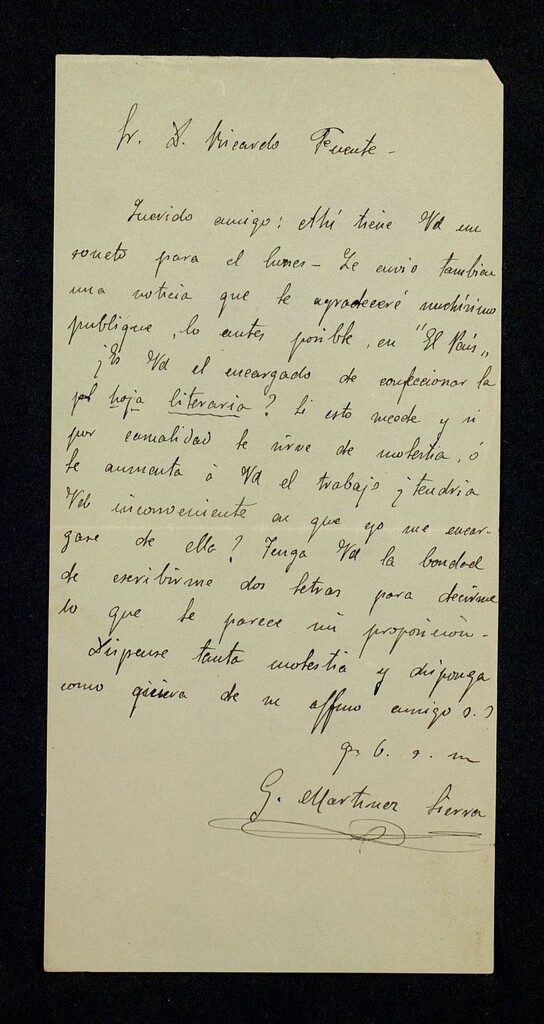 Sr. D. Ricardo Fuente -
Querido amigo: Ahí tiene Vd un
soneto para el lunes - Le envio tambien
una noticia que le agradeceré muchísimo
publique, lo antes posible, en "El País"
¿Es Vd el encargado de confeccionar la
hoja literaria? Si esto sucede y si
por casualidad le sirve de molestia, ó
le aumenta á Vd el trabajo ¿tendria
Vd inconveniente en que yo me encar-
gase de ella? Tenga Vd la bondad
de escribirme dos letras para decirme
lo que le parece mi proposición -
Dispense tanta molestia y disponga
como quiera de su affmo amigo s. s
q. b. s. m
G. Martinez Sierra